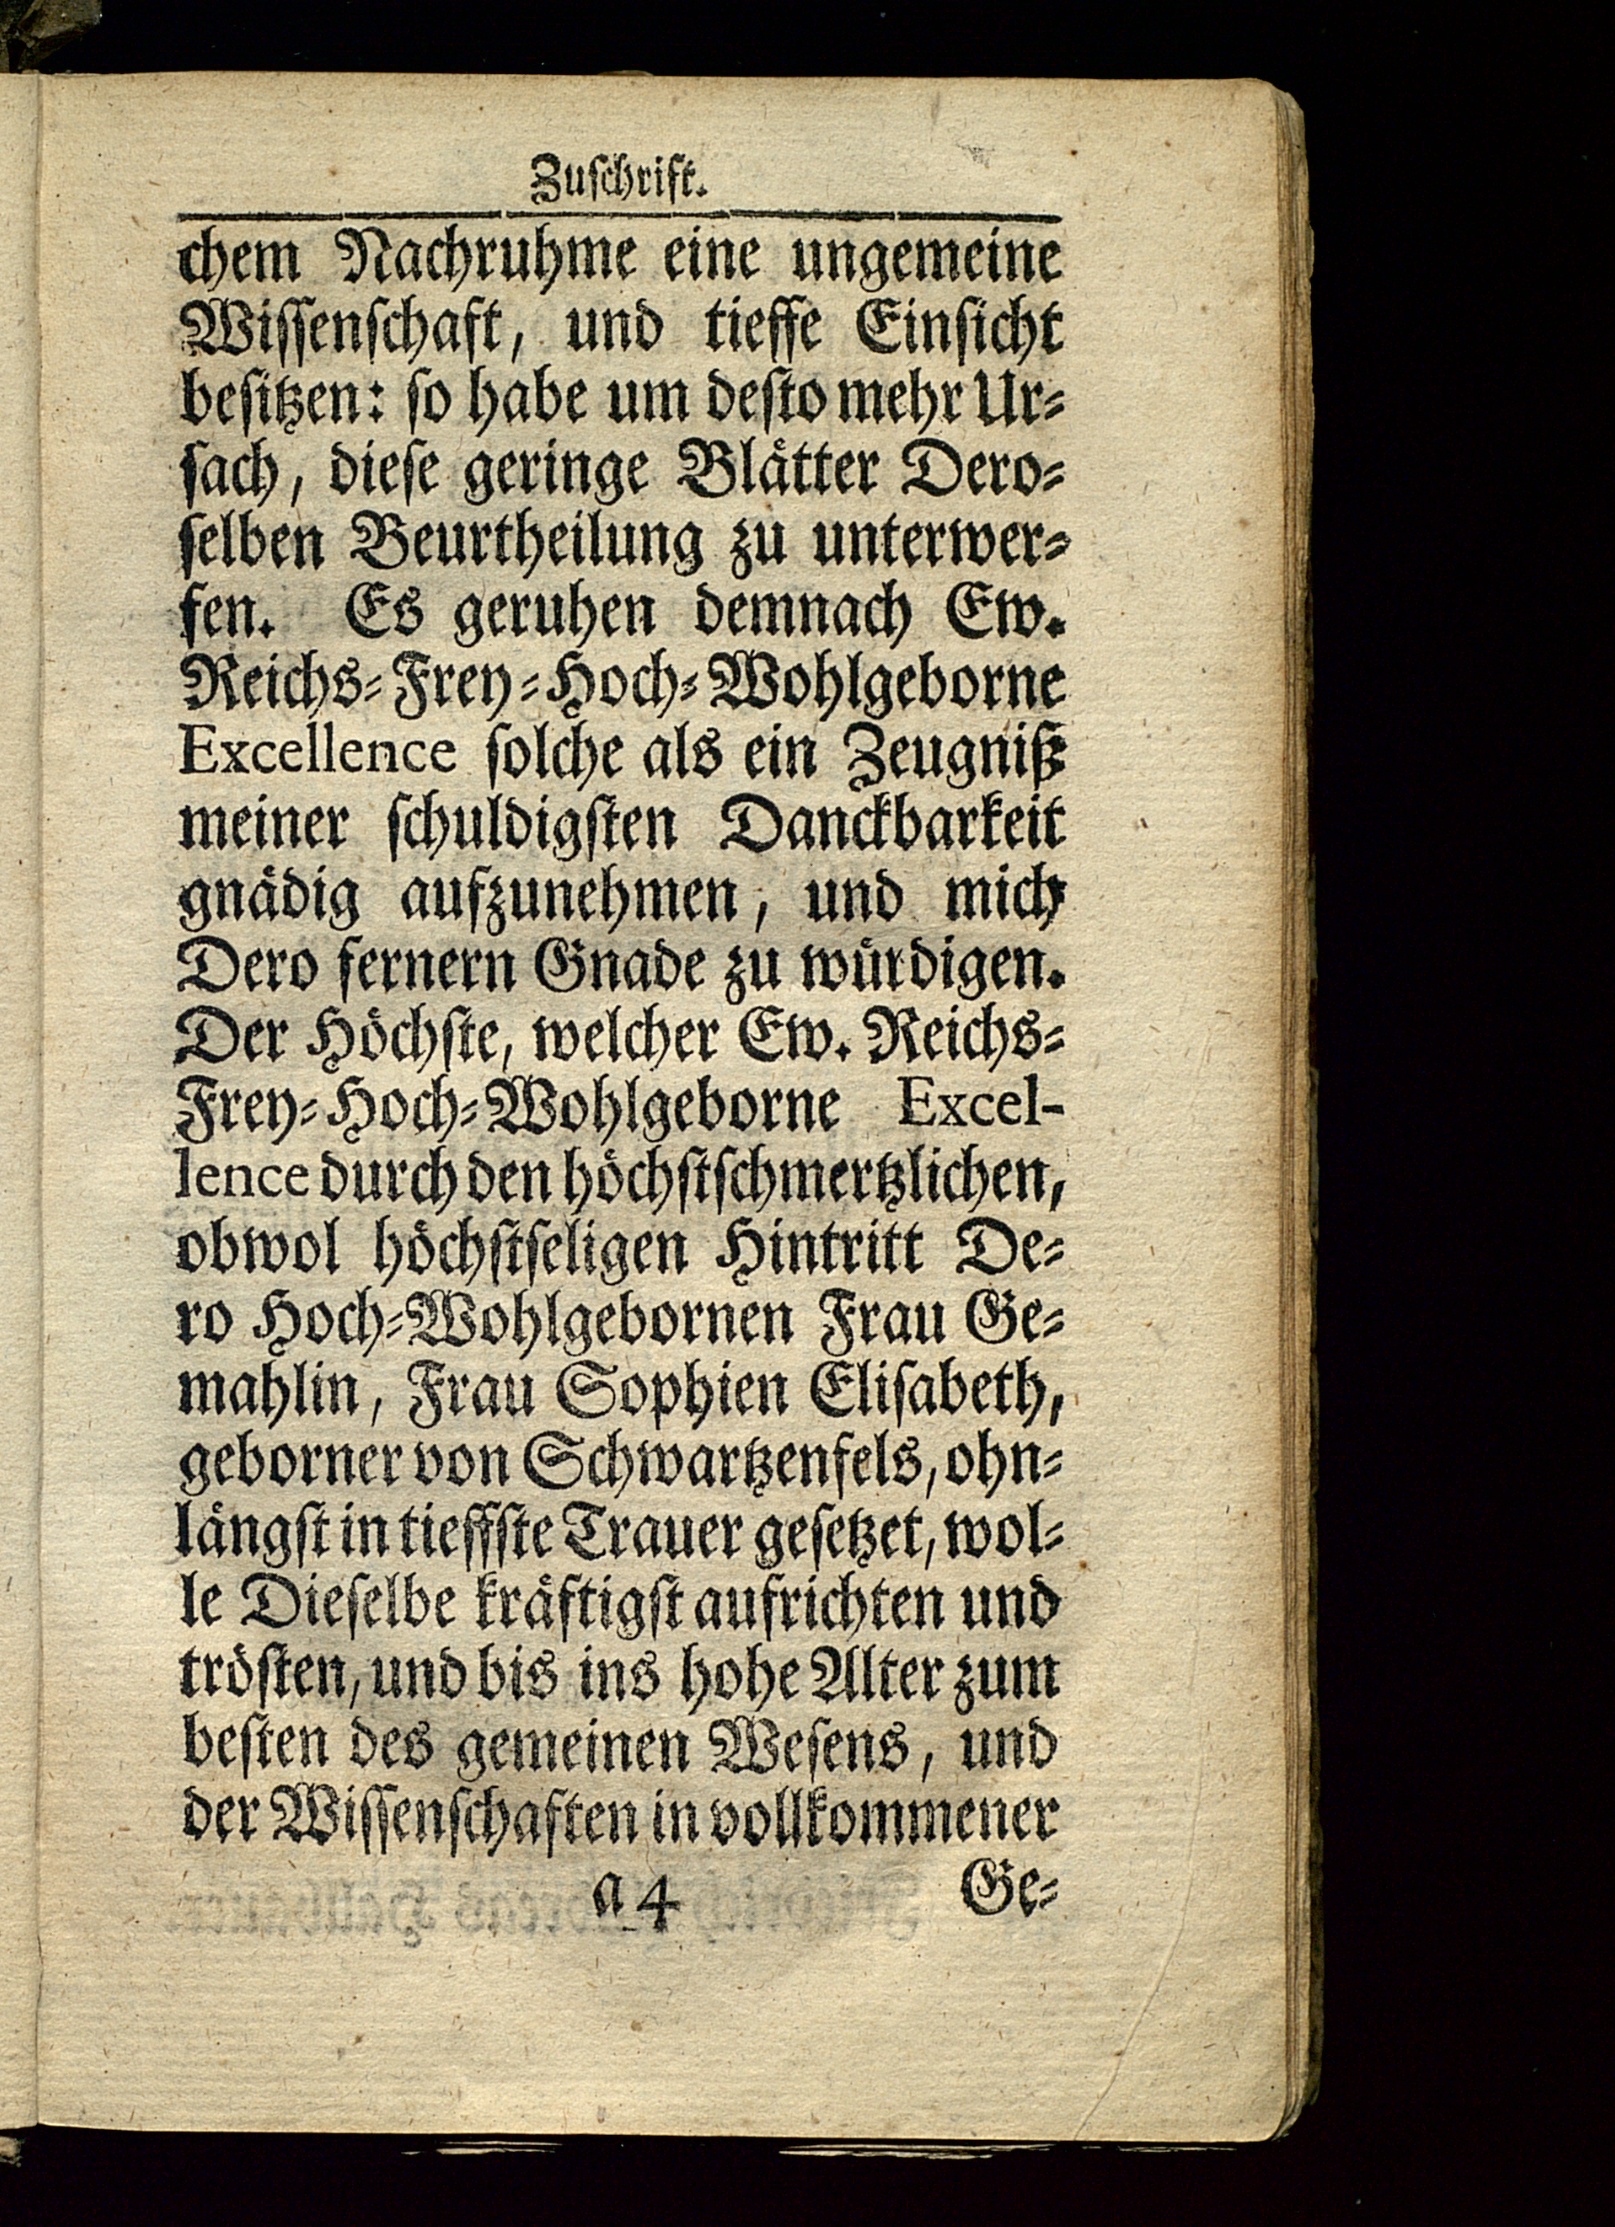 Zuſchrift.
chem Nachruhme eine ungemeine
Wiſſenſchaft, und tieffe Einſicht
beſitzen: ſo habe um deſto mehr Ur⸗
ſach, dieſe geringe Blaͤtter Dero⸗
ſelben Beurtheilung zu unterwer⸗
fen. Es geruhen demnach Ew.
Reichs⸗Frey⸗Hoch⸗Wohlgeborne
Excellence ſolche als ein Zeugniß
meiner ſchuldigſten Danckbarkeit
gnaͤdig aufzunehmen, und mich
Dero fernern Gnade zu wuͤrdigen.
Der Hoͤchſte, welcher Ew. Reichs⸗
Frey⸗Hoch⸗Wohlgeborne Excel-
lence durch den hoͤchſtſchmertzlichen,
obwol hoͤchſtſeligen Hintritt De⸗
ro Hoch⸗Wohlgebornen Frau Ge⸗
mahlin, Frau Sophien Eliſabeth,
geborner von Schwartzenfels, ohn⸗
laͤngſt in tieffſte Trauer geſetzet, wol⸗
le Dieſelbe kraͤftigſt aufrichten und
troͤſten, und bis ins hohe Alter zum
beſten des gemeinen Weſens, und
der Wiſſenſchaften in vollkommener
a 4 Ge⸗